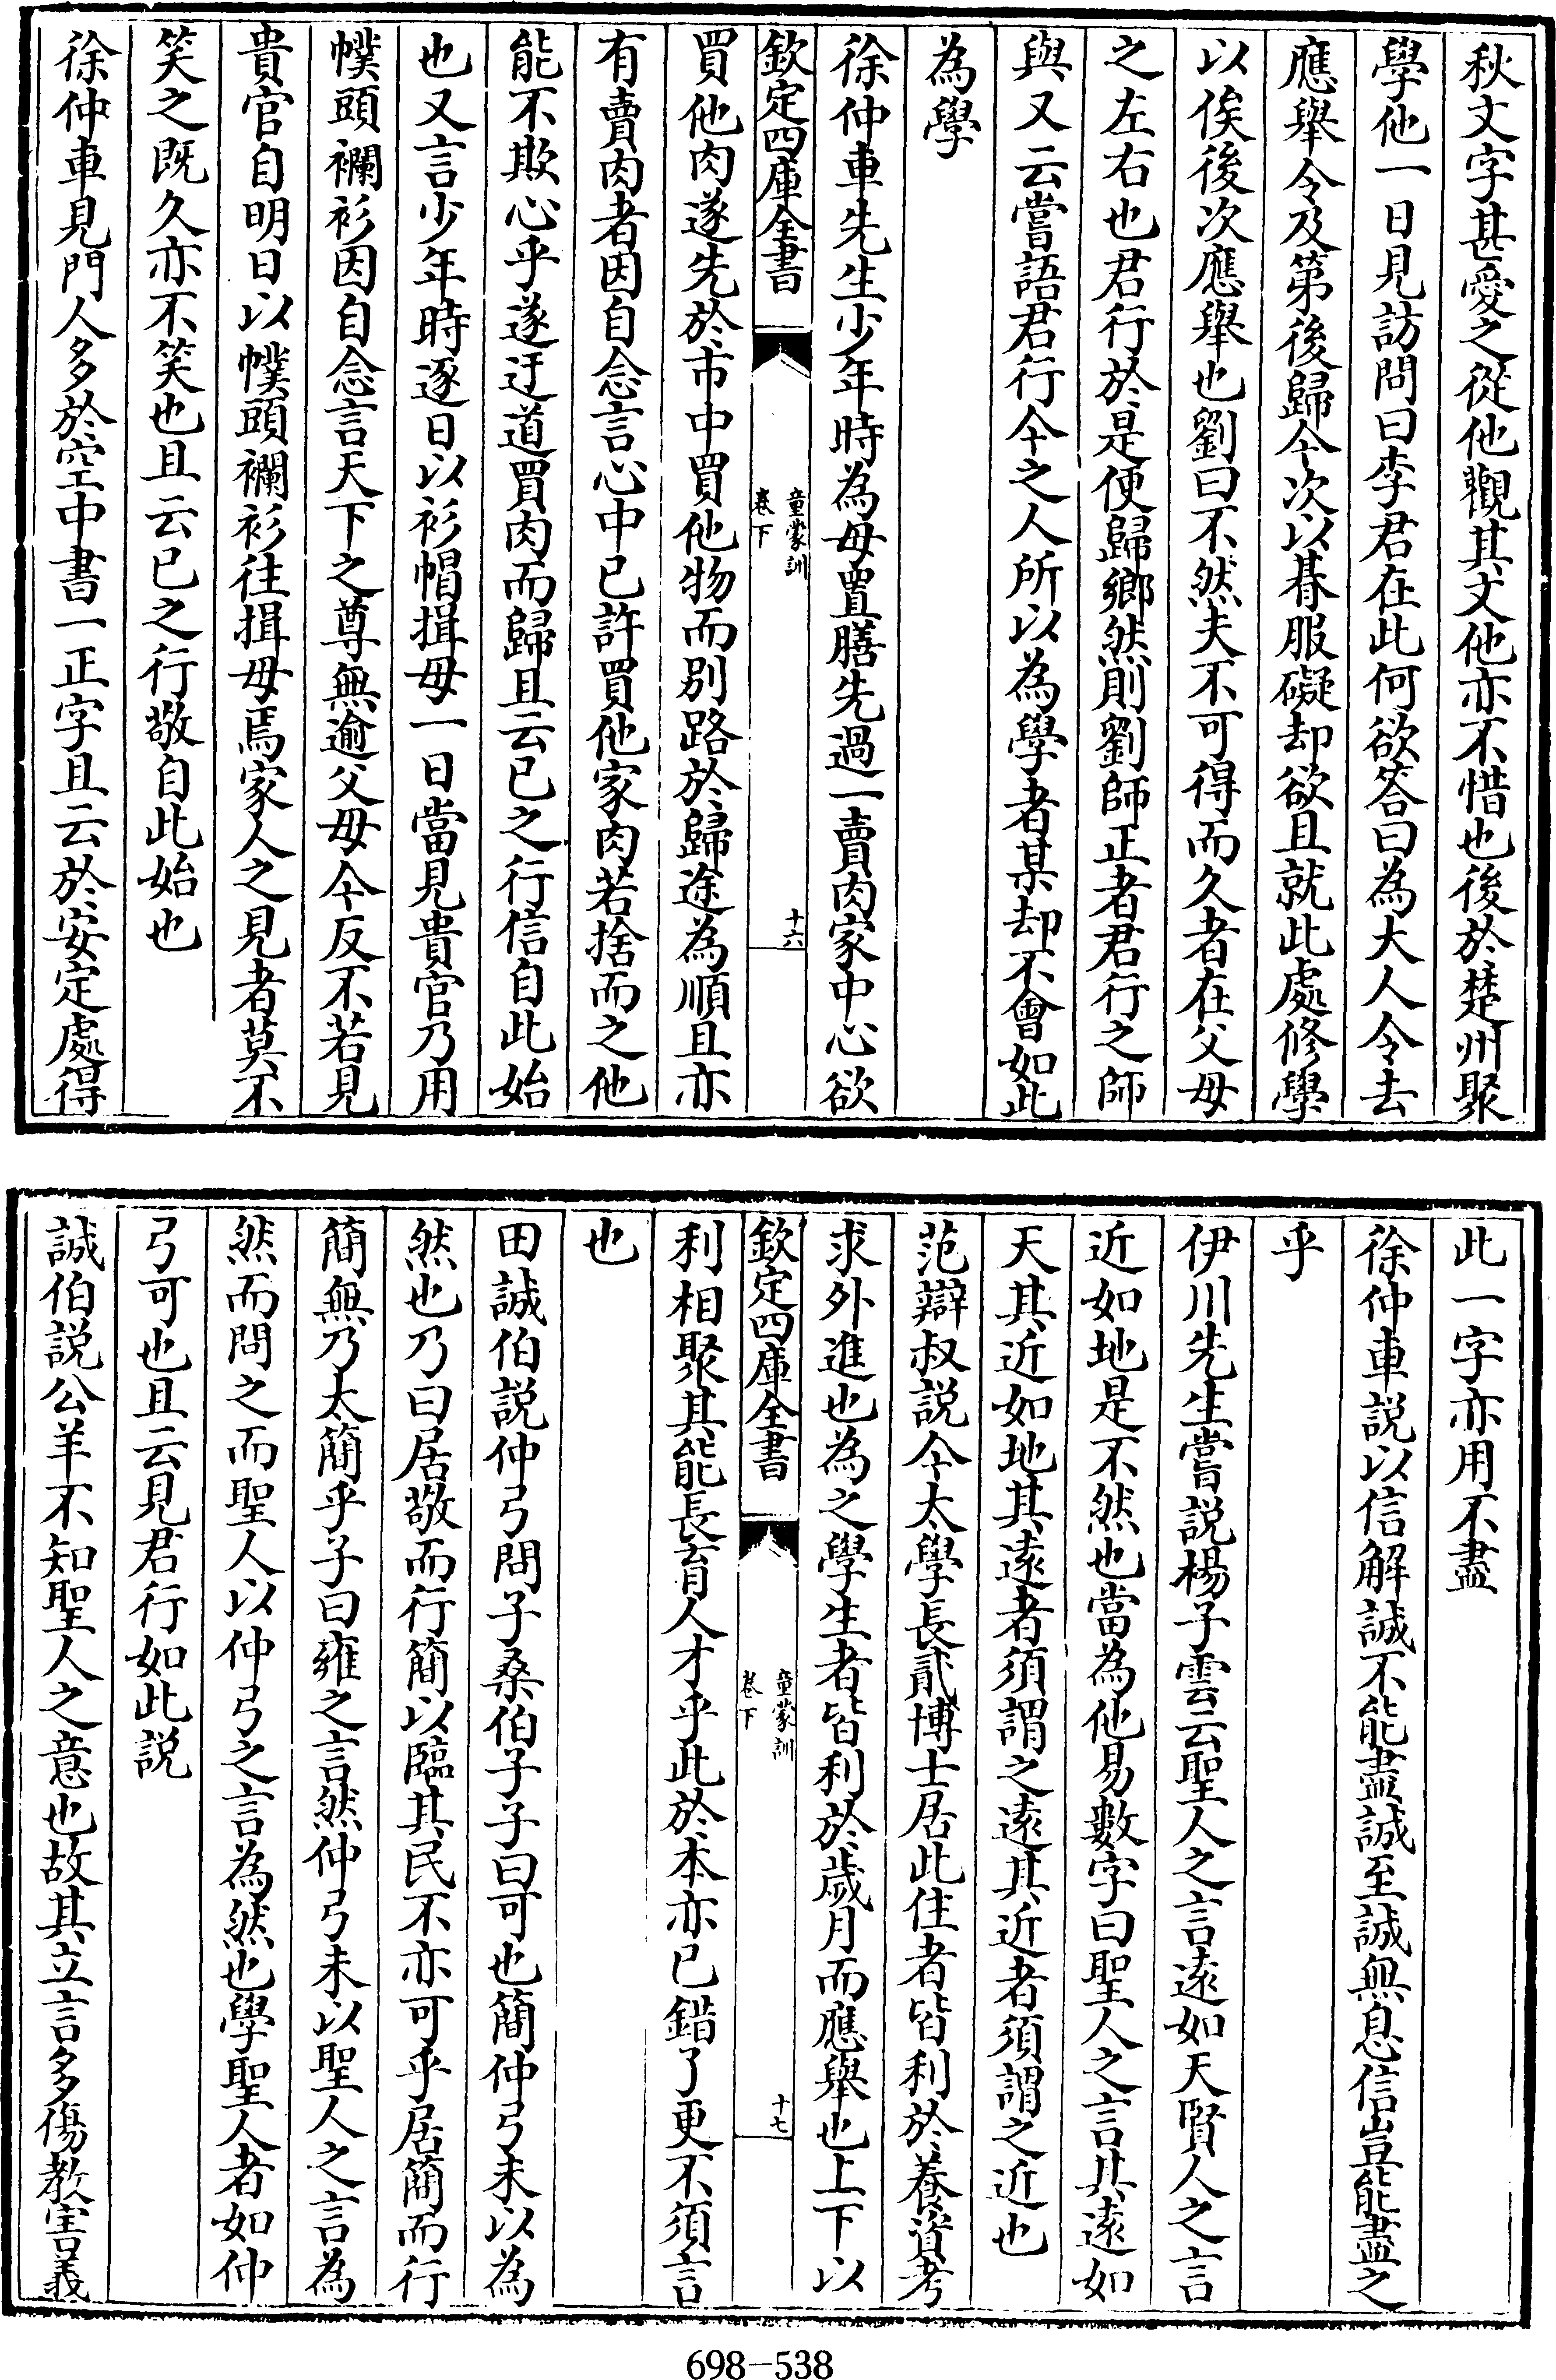 秋文字甚愛之從他觀其文他亦不惜也後於楚州聚
學他一日見訪問曰李君在此何欲答曰為大人令去
應舉今及第後歸今次以朞服礙却欲且就此處修學
以俟後次應舉也劉曰不然夫不可得而久者在父母
之左右也君行於是便歸鄉然則劉師正者君行之師
與又云嘗語君行今之人所以為學者某却不會如此
為學
徐仲車先生少年時為母置膳先過一賣肉家中心欲
欽定四庫全書
童蒙訓
卷下
十六
買他肉遂先於市中買他物而别路於歸途為順且亦
有賣肉者因自念言心中已許買他家肉若捨而之他
能不欺心乎遂迂道買肉而歸且云已之行信自此始
也又言少年時逐日以衫帽揖母一日當見貴官乃用
幞頭襴衫因自念言天下之尊無逾父母今反不若見
貴官自明日以幞頭襴衫往揖母焉家人之見者莫不
笑之既久亦不笑也且云已之行敬自此始也
徐仲車見門人多於空中書一正字且云於安定處得
此一字亦用不盡
徐仲車説以信解誠不能盡誠至誠無息信豈能盡之
乎
伊川先生嘗説楊子雲云聖人之言遠如天賢人之言
近如地是不然也當為他易數字曰聖人之言其遠如
天其近如地其遠者須謂之遠其近者須謂之近也
范辯叔説今太學長貳博士居此住者皆利於養資考
求外進也為之學生者皆利於歲月而應舉也上下以
欽定四庫全書
童蒙訓
卷下
十七
利相聚其能長育人才乎此於本亦已錯了更不須言
也
田誠伯説仲弓問子桑伯子子曰可也簡仲弓未以為
然也乃曰居敬而行簡以臨其民不亦可乎居簡而行
簡無乃太簡乎子曰雍之言然仲弓未以聖人之言為
然而問之而聖人以仲弓之言為然也學聖人者如仲
弓可也且云見君行如此説
誠伯説公羊不知聖人之意也故其立言多傷教害義
698-538